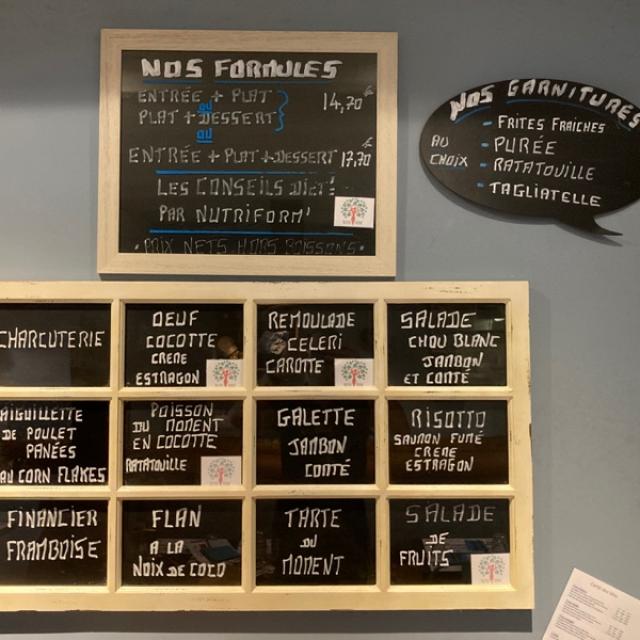 NOS FORMULES
ENTRÉE + PLAT
ou
PLAT + DESSERT
14,70€
ou
ENTRÉE + PLAT + DESSERT 17,70€
LES CONSEILS DIET!
PAR NUTRIFORM'
• PRIX NETS HORS BOISSONS •
NOS GARNITURES
AU CHOIX
- FRITES FRAICHES
- PURÉE
- RATATOUILLE
- TAGLIATELLE
CHARCUTERIE
OEUF
COCOTTE
CREME
ESTRAGON
REMOULADE
CELERI
CAROTTE
SALADE
CHOU BLANC
JAMBON
ET COMTÉ
AIGUILLETTE
DE POULET
PANÉES
AU CORN FLAKES
POISSON
DU MOMENT
EN COCOTTE
RATATOUILLE
GALETTE
JAMBON
COMTÉ
RISOTTO
SAUMON FUMÉ
CREME
ESTRAGON
FINANCIER
FRAMBOISE
FLAN
A LA
NOIX DE COCO
TARTE
DU
MOMENT
SALADE
DE
FRUITS